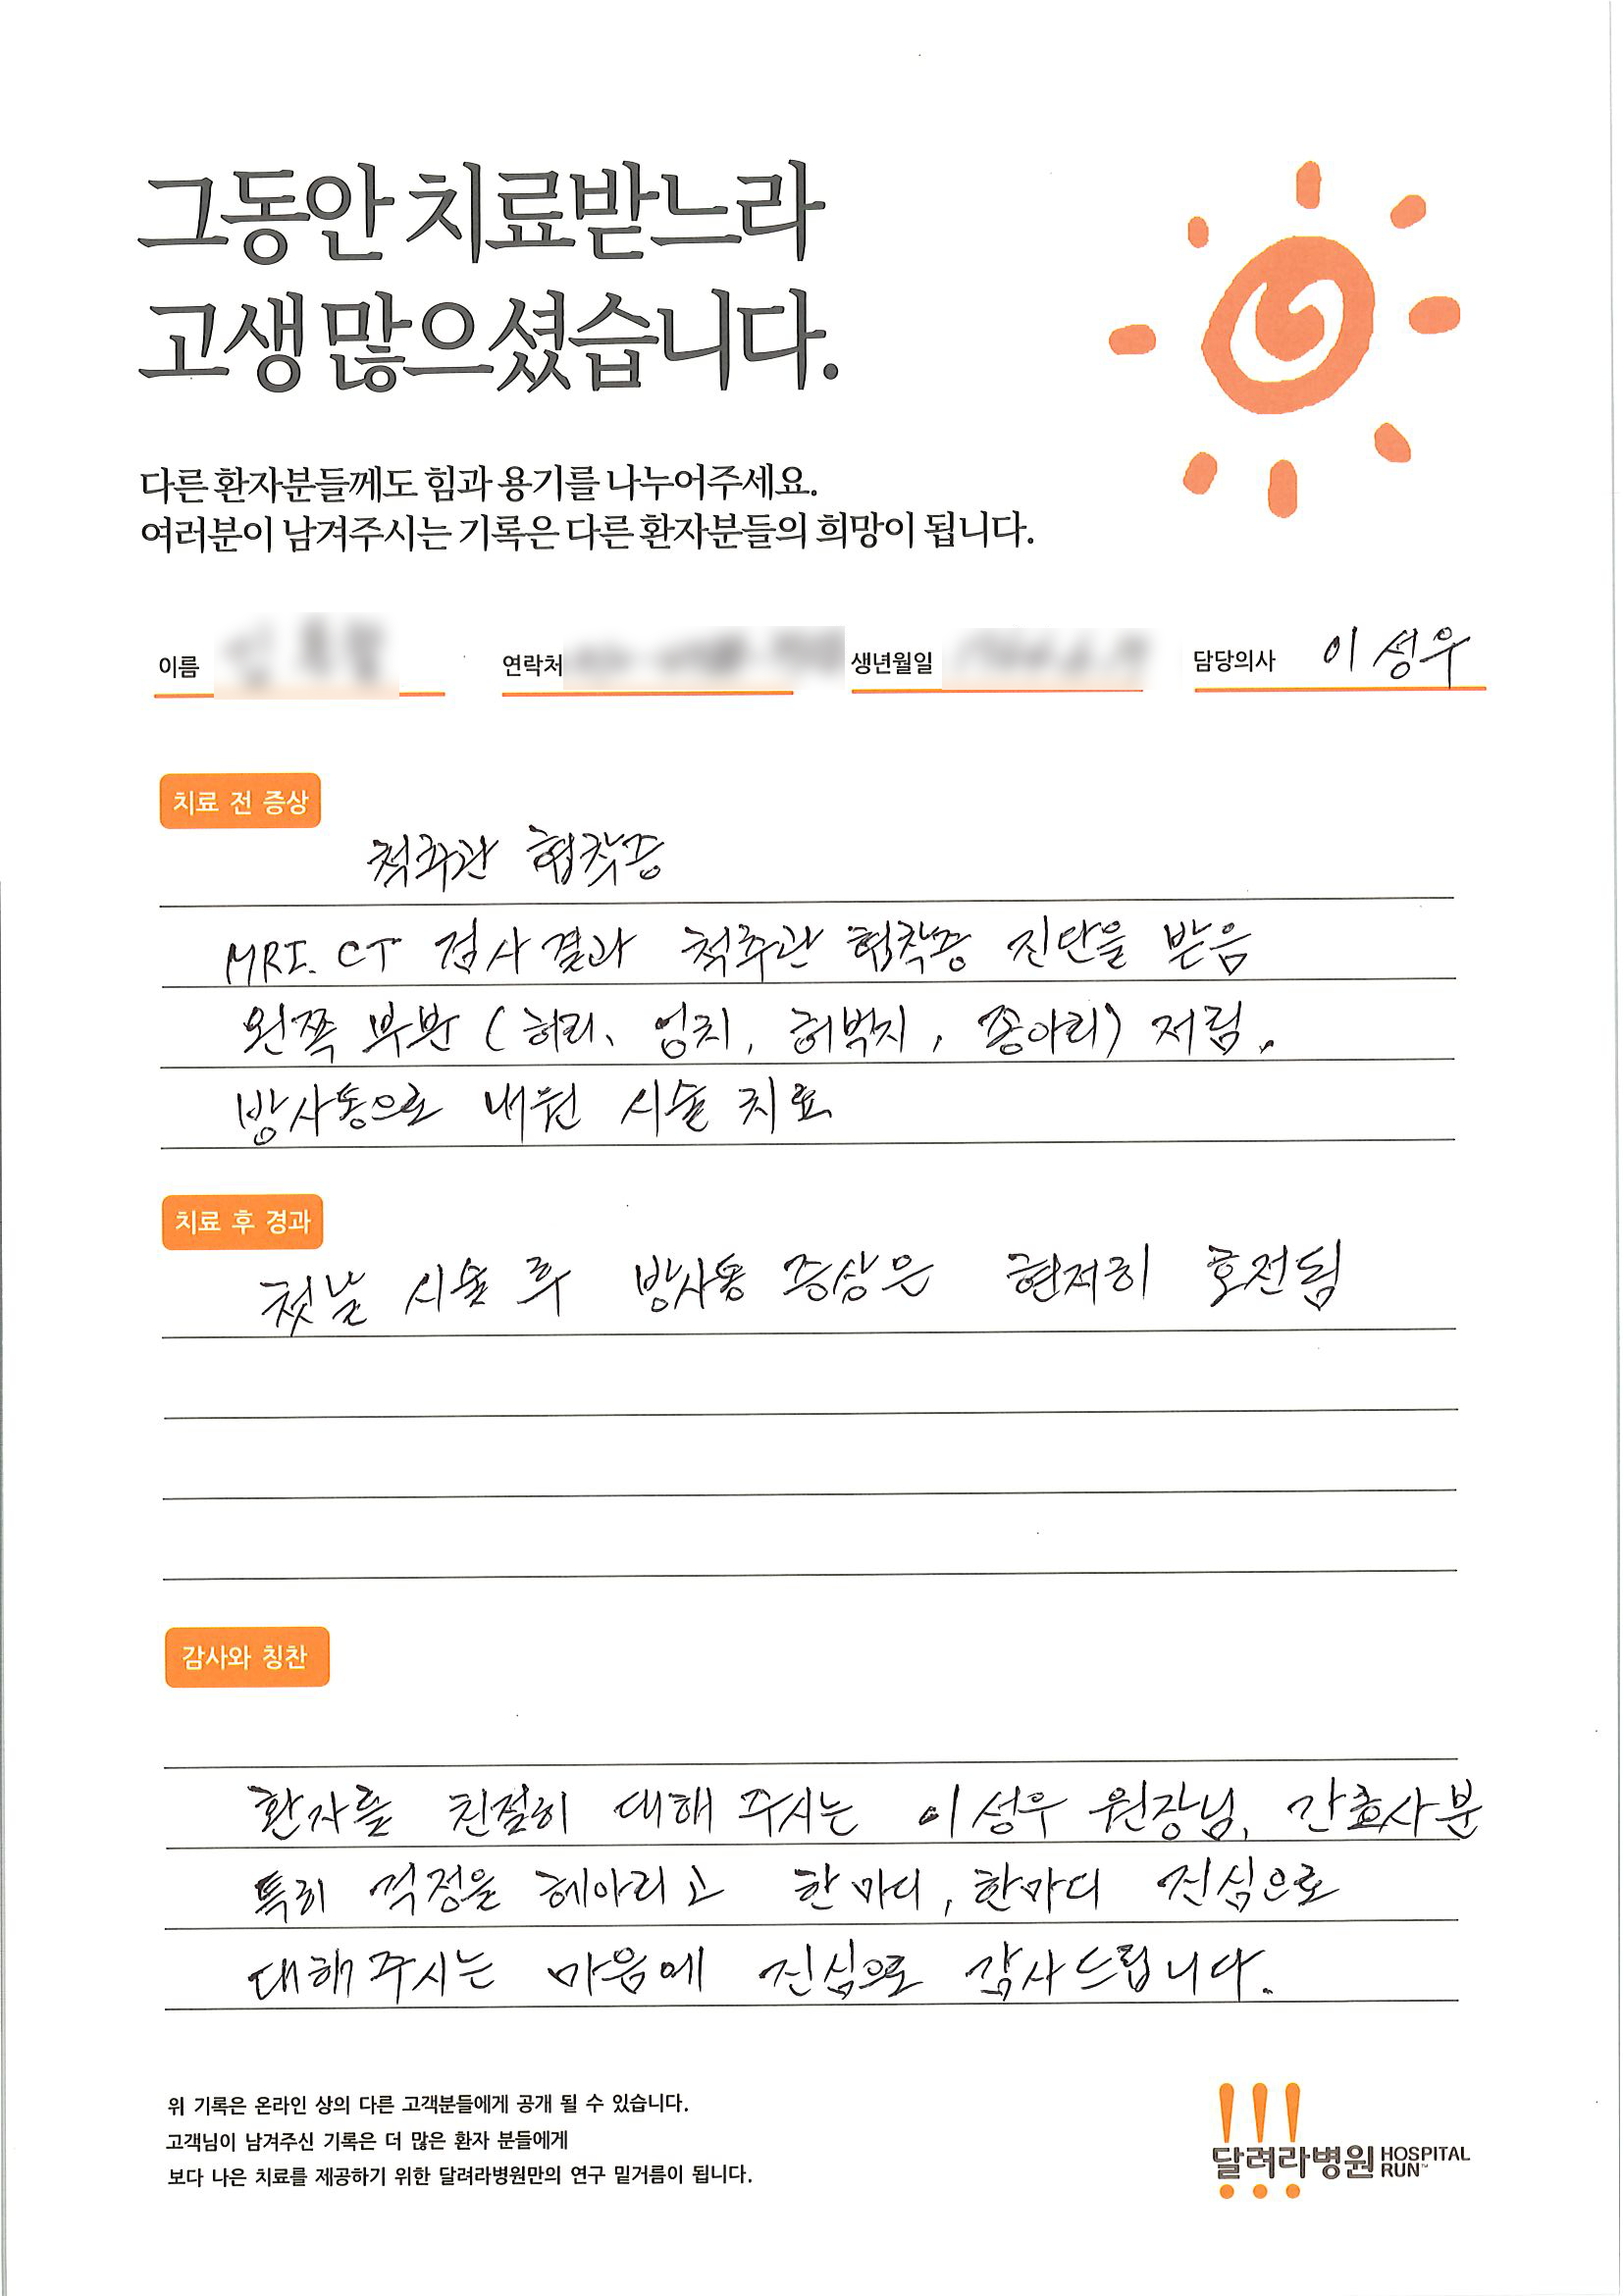 그동안 치료받느라
고생 많으셨습니다.
다른 환자분들께도 힘과 용기를 나누어주세요.
여러분이 남겨주시는 기록은 다른 환자분들의 희망이 됩니다.
이름 연락처 생년월일 담당의사 이성우
치료 전 증상
척추관 협착증
MRI. CT 검사결과 척추관 협착증 진단을 받음
왼쪽 부분 (허리, 엉치, 허벅지, 종아리) 저림.
방사통으로 내원 시술 치료
치료 후 경과
첫날 시술 후 방사통 증상은 현저히 호전됨
감사와 칭찬
환자를 친절히 대해 주시는 이성우 원장님, 간호사분
특히 걱정을 헤아리고 한마디, 한마디 진심으로
대해주시는 마음에 진심으로 감사드립니다.
위 기록은 온라인 상의 다른 고객분들에게 공개 될 수 있습니다.
고객님이 남겨주신 기록은 더 많은 환자 분들에게
보다 나은 치료를 제공하기 위한 달려라병원만의 연구 밑거름이 됩니다.
달려라병원 HOSPITAL RUN™